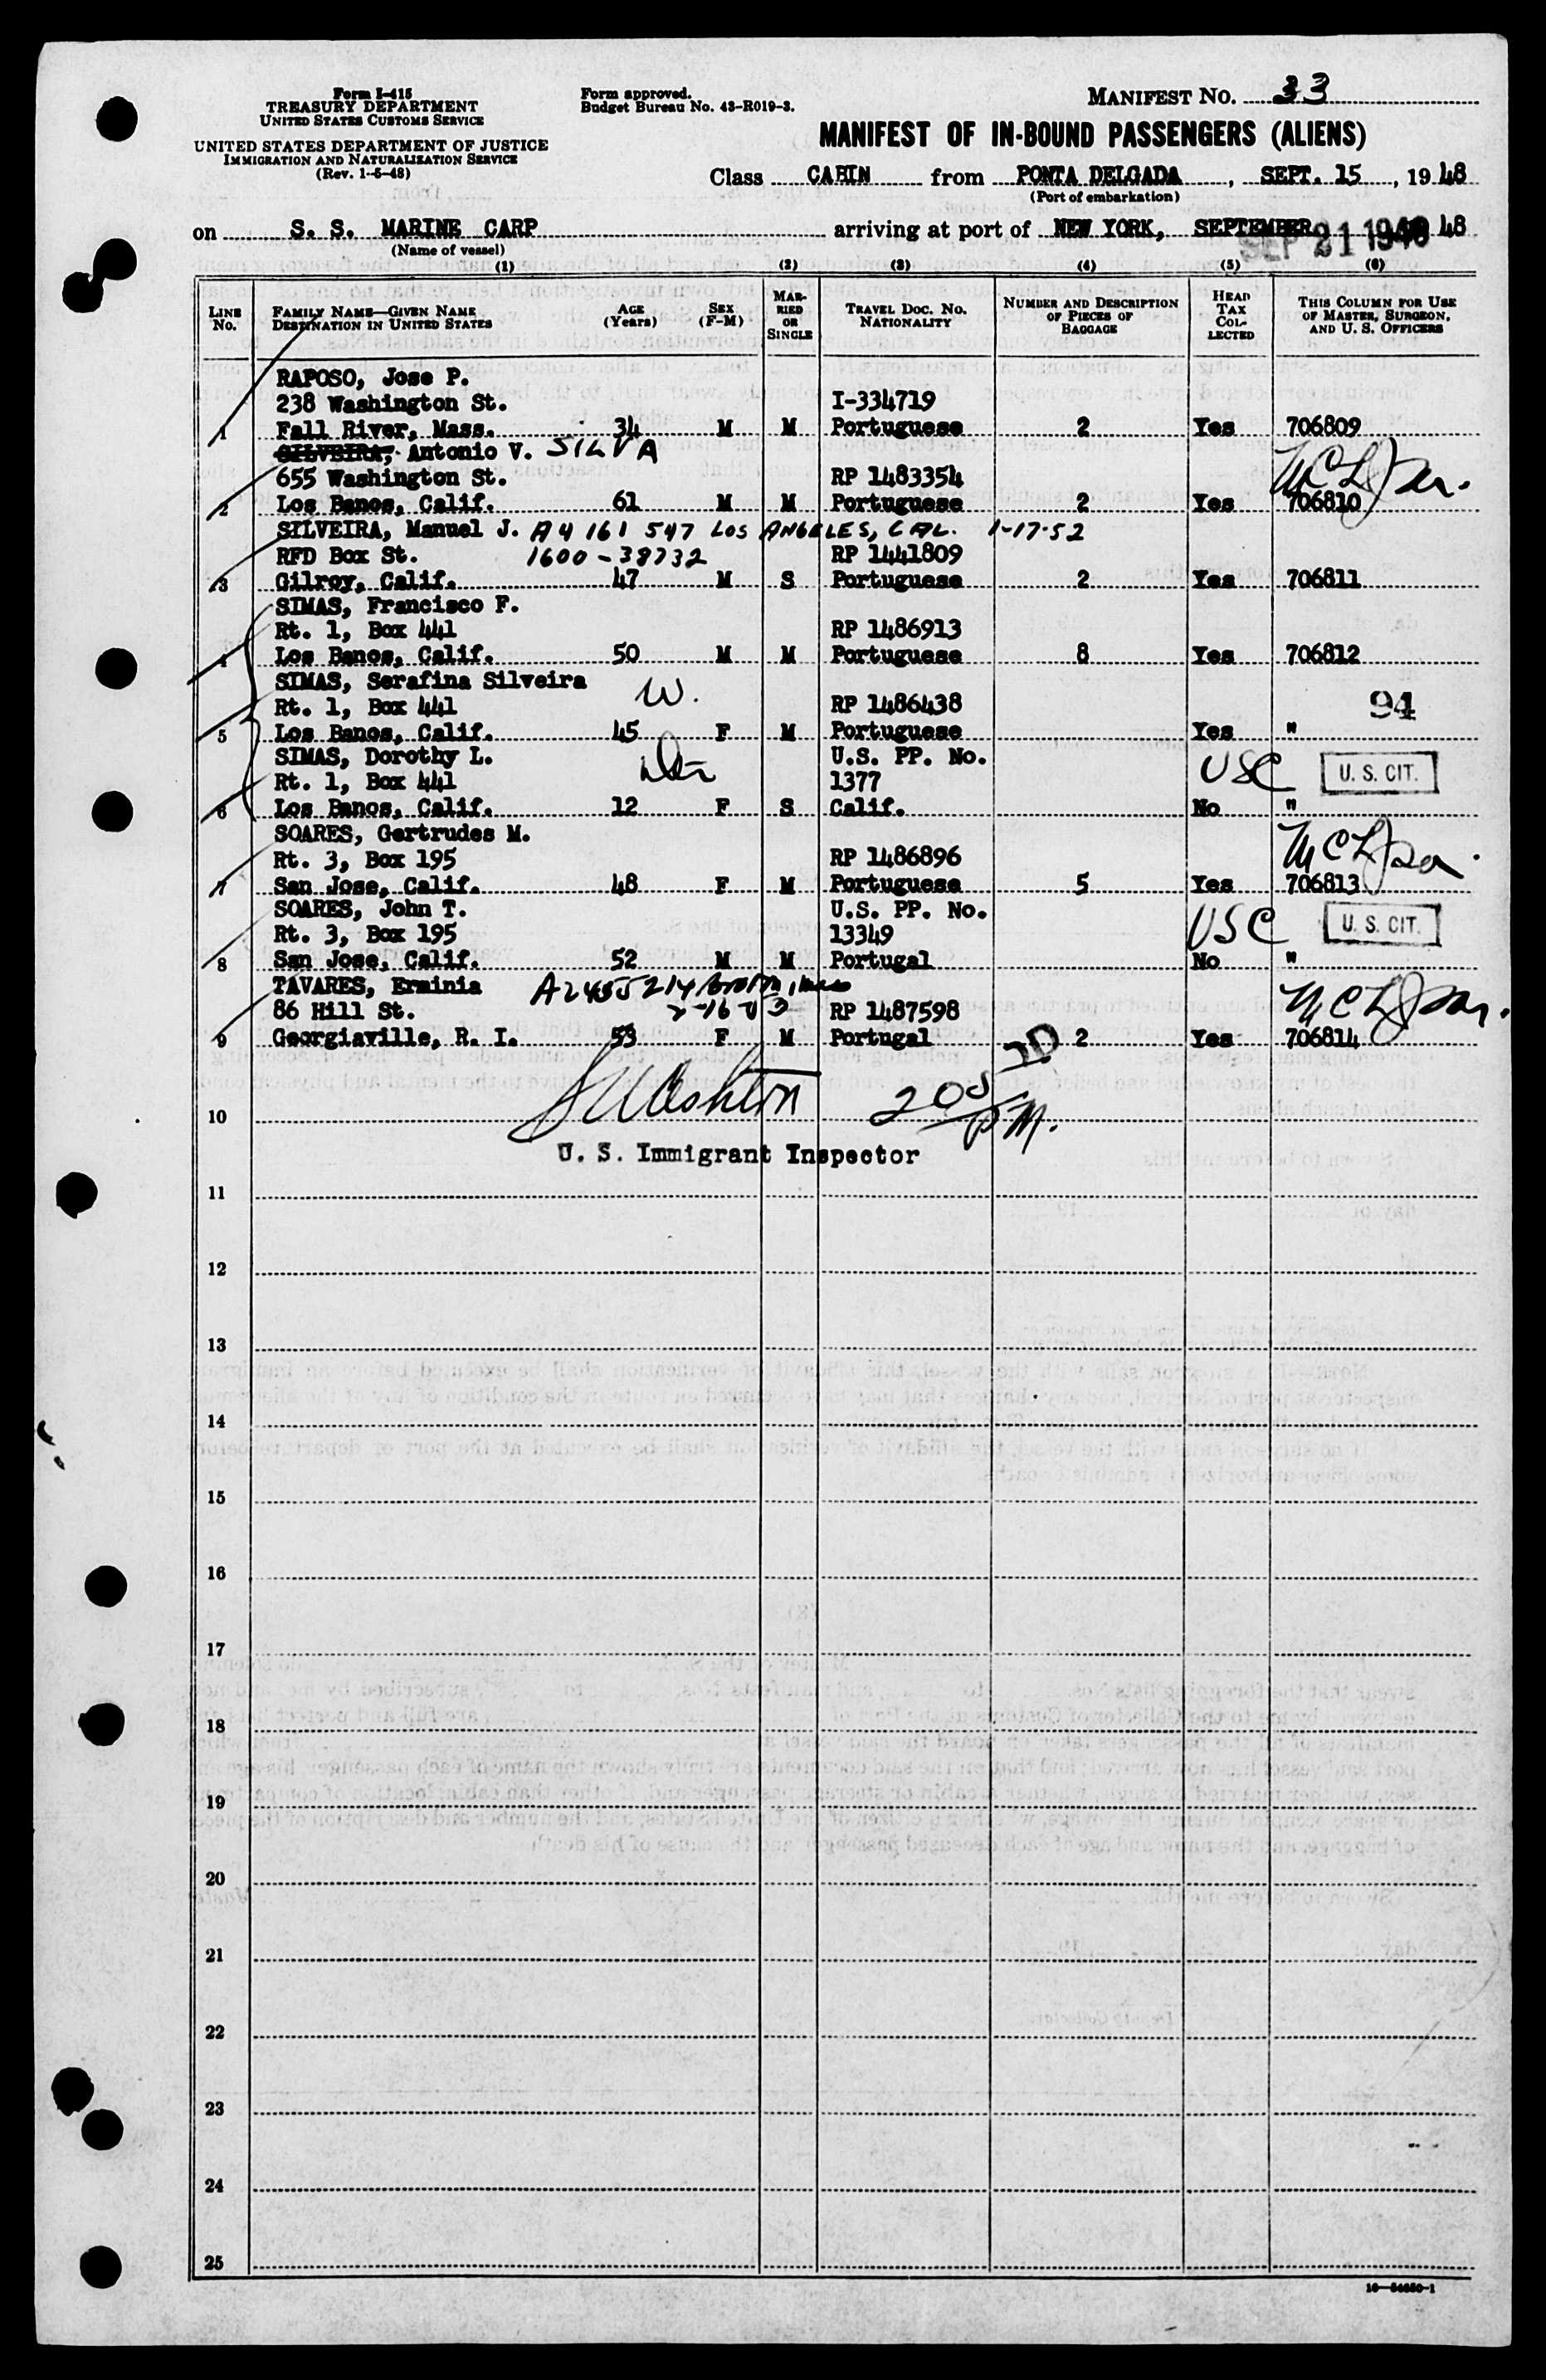 Form I-415
TREASURY DEPARTMENT
UNITED STATES CUSTOMS SERVICE
UNITED STATES DEPARTMENT OF JUSTICE
IMMIGRATION AND NATURALIZATION SERVICE
(Rev. 1-6-48)
Form approved.
Budget Bureau No. 43-R019-3.
MANIFEST NO. 33
MANIFEST OF IN-BOUND PASSENGERS (ALIENS)
Class CABIN from PONTA DELGADA, SEPT. 15, 1948
(Port of embarkation)
on S. S. MARINE CARP arriving at port of NEW YORK, SEPTEMBER 48
SEP 21 1948
(Name of vessel)
(1) (2) (3) (4) (5) (6)
LINE No. FAMILY NAME—GIVEN NAME DESTINATION IN UNITED STATES AGE (Years) SEX (F-M) MARRIED OR SINGLE TRAVEL DOC. NO. NATIONALITY NUMBER AND DESCRIPTION OF PIECES OF BAGGAGE HEAD TAX COLLECTED THIS COLUMN FOR USE OF MASTER, SURGEON, AND U. S. OFFICERS
RAPOSO, Jose P.
238 Washington St. I-334719
1 Fall River, Mass. 34 M M Portuguese 2 Yes 706809
SILVEIRA, Antonio V. SILVA
655 Washington St. RP 1483354
2 Los Banos, Calif. 61 M M Portuguese 2 Yes 706810
SILVEIRA, Manuel J. A4 161 547 LOS ANGELES, CAL. 1-17-52
RFD Box St. 1600-38732 RP 1441809
3 Gilroy, Calif. 47 M S Portuguese 2 Yes 706811
SIMAS, Francisco F.
Rt. 1, Box 441 RP 1486913
4 Los Banos, Calif. 50 M M Portuguese 8 Yes 706812
SIMAS, Serafina Silveira W.
Rt. 1, Box 441 RP 1486438 94
5 Los Banos, Calif. 45 F M Portuguese Yes "
SIMAS, Dorothy L. U.S. PP. No. USC U. S. CIT.
Rt. 1, Box 441 1377
6 Los Banos, Calif. 12 F S Calif. No "
SOARES, Gertrudes M.
Rt. 3, Box 195 RP 1486896
7 San Jose, Calif. 48 F M Portuguese 5 Yes 706813
SOARES, John T. U.S. PP. No. USC U. S. CIT.
Rt. 3, Box 195 13349
8 San Jose, Calif. 52 M M Portugal No "
TAVARES, Erminia
86 Hill St. RP 1487598
9 Georgiaville, R. I. 53 F M Portugal 2 Yes 706814
10 200 PM.
U. S. Immigrant Inspector
11
12
13
14
15
16
17
18
19
20
21
22
23
24
25